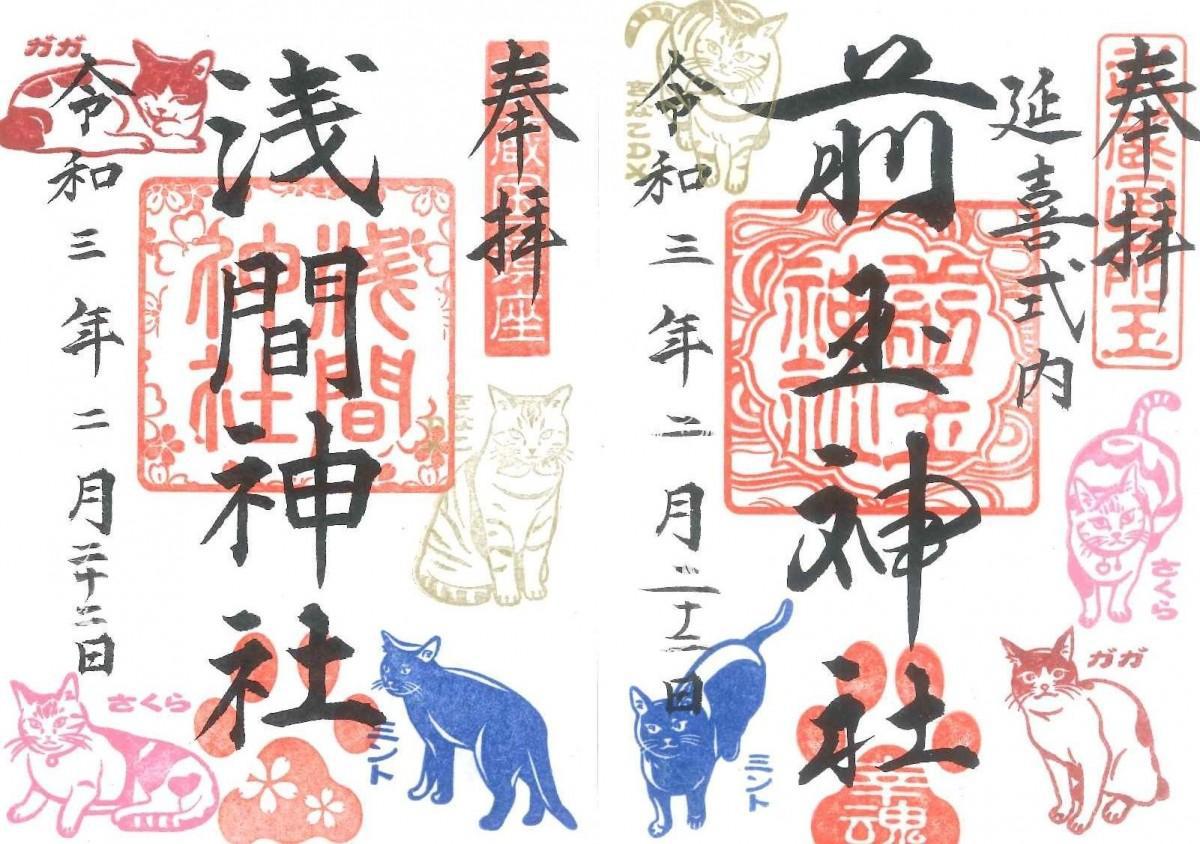 奉拝
武蔵国前玉
延喜式内
前玉神社
前玉神社
令和三年二月二十二日
きなこDX
さくら
ガガ
ミント
幸魂
奉拝
浅間神社
浅間神社
令和三年二月二十二日
ガガ
きなこ
ミント
さくら